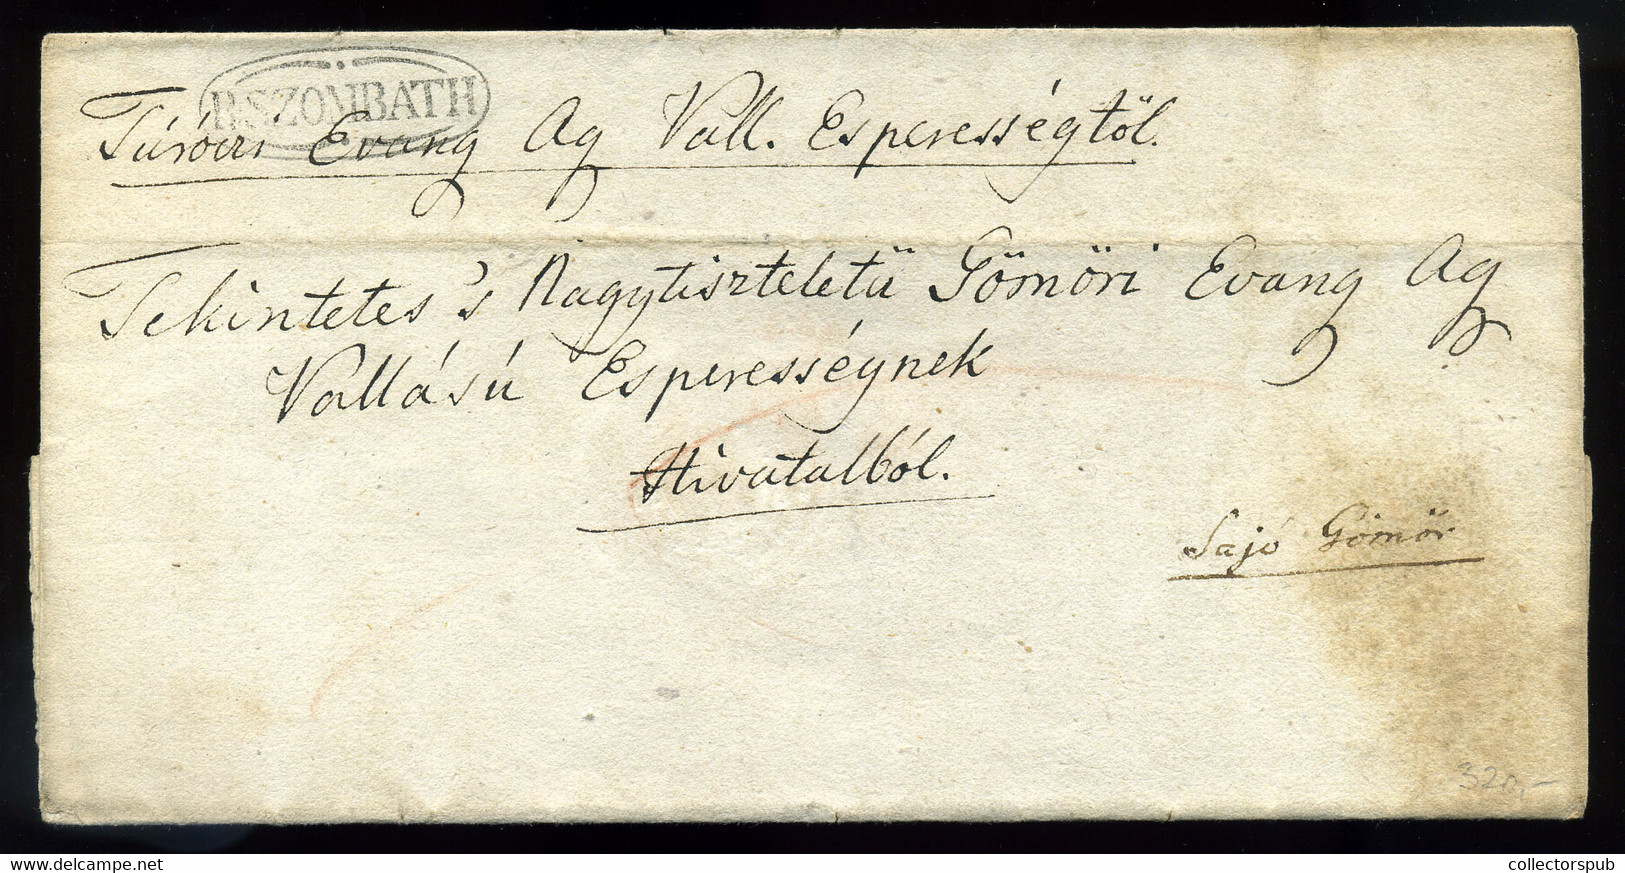 R.SZOMBATH
Túróczi Evang Ag Vall. Esperességtől.
Tekintetes 's Nagytiszteletű Gömöri Evang Ag
Vallású Esperességnek
Hivatalból.
Sajó Gömör
320,-
www.delcampe.net
collectorspub